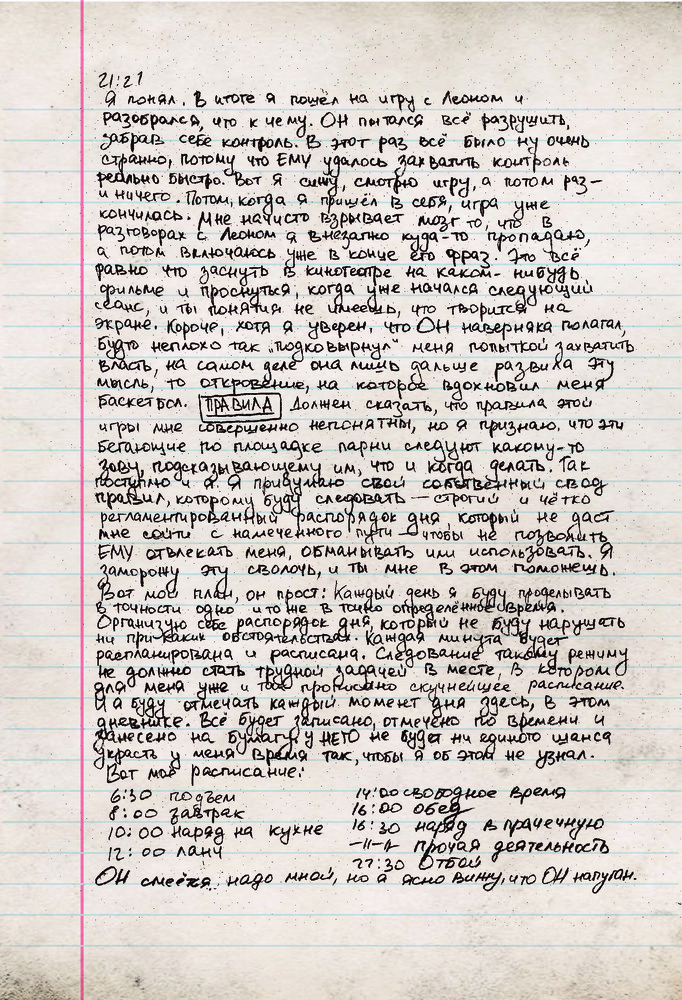 21:21
Я понял. В итоге я пошёл на игру с Леоном и
разобрался, что к чему. ОН пытался всё разрушить,
забрав себе контроль. В этот раз всё было ну очень
странно, потому что ЕМУ удалось захватить контроль
реально быстро. Вот я сижу, смотрю игру, а потом раз–
и ничего. Потом, когда я пришёл в себя, игра уже
кончилась. Мне начисто взрывает мозг то, что в
разговорах с Леоном я внезапно куда-то пропадаю,
а потом включаюсь уже в конце его фраз. Это всё
равно что заснуть в кинотеатре на каком-нибудь
фильме и проснуться, когда уже начался следующий
сеанс, и ты понятия не имеешь, что творится на
экране. Короче, хотя я уверен, что ОН наверняка полагал,
будто неплохо так „подковырнул" меня попыткой захватить
власть, на самом деле она лишь дальше развила эту
мысль, то откровение, на которое вдохновил меня
баскетбол. ПРАВИЛА Должен сказать, что правила этой
игры мне совершенно непонятны, но я признаю, что эти
бегающие по площадке парни следуют какому-то
зову, подсказывающему им, что и когда делать. Так
поступлю и я. Я придумаю свой собственный свод
правил, которому буду следовать — строгий и чётко
регламентированный распорядок дня, который не даст
мне сойти с намеченного пути — чтобы не позволить
ЕМУ отвлекать меня, обманывать или использовать. Я
заморожу эту сволочь, и ты мне в этом поможешь.
Вот мой план, он прост: Каждый день я буду проделывать
в точности одно и то же в точно определённое время.
Организую себе распорядок дня, который не буду нарушать
ни при каких обстоятельствах. Каждая минута будет
распланирована и расписана. Следование такому режиму
не должно стать трудной задачей в месте, в котором
для меня уже и так прописано скучнейшее расписание.
И я буду отмечать каждый момент дня здесь, в этом
дневнике. Всё будет записано, отмечено по времени и
занесено на бумагу, у НЕГО не будет ни единого шанса
украсть у меня время так, чтобы я об этом не узнал.
Вот моё расписание:
6:30 подъем
8:00 завтрак
10:00 наряд на кухне
12:00 ланч
14:00 свободное время
16:00 обед
16:30 наряд в прачечную
–//–//– прочая деятельность
22:30 Отбой
ОН смеётся надо мной, но я ясно вижу, что ОН напуган.